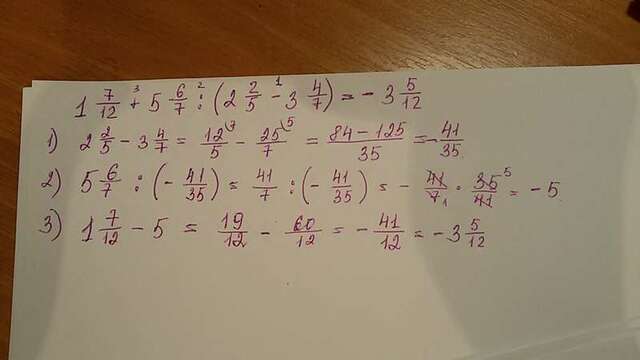 1 7/12 +³ 5 6/7 :² (2 2/5 -¹ 3 4/7) = - 3 5/12
1) 2 2/5 - 3 4/7 = 12/5 \7 - 25/7 \5 = 84 - 125/35 = - 41/35
2) 5 6/7 : (- 41/35) = 41/7 : (- 41/35) = - 41/7 1 · 35 5/41 = - 5
3) 1 7/12 - 5 = 19/12 - 60/12 = - 41/12 = - 3 5/12